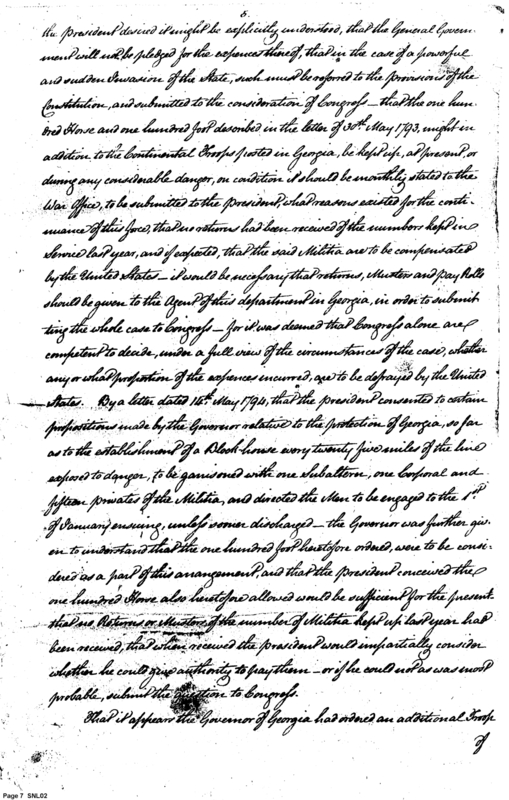 6.
the President desired it might be explicitly understood, that the General Govern-
ment will not be pledged for the expences thereof, that in the case of a powerful
and sudden Invasion of the State, such must be referred to the provisions of the
Constitution, and submitted to the consideration of Congress — that the one hun-
dred Horse and one hundred foot described in the letter of 30th May 1793, might in
addition to the Continental Troops posted in Georgia, be kept up, at present, or
during any considerable danger, on condition it should be monthly stated to the
War Office, to be submitted to the President, what reasons existed for the conti-
nuance of this force, that no returns had been received of the numbers kept in
Service last year, and if expected, that the said Militia are to be compensated
by the United States — it would be necessary that returns, Musters and pay Rolls
should be given to the Agent of this department in Georgia, in order to submit-
ting the whole case to Congress — for it was deemed that Congress alone are
competent to decide, under a full view of the circumstances of the case, whether
any or what proportion of the expences incurred, are to be defrayed by the United
States. By a letter dated 14th May 1794, that the President consented to certain
propositions made by the Governor relative to the protection of Georgia, so far
as to the establishment of a Block-house every twenty five miles of the line
exposed to danger, to be garrisoned with one Subaltern, one Corporal and
fifteen privates of the Militia, and directed the Men to be engaged to the 1st
of January ensuing, unless sooner discharged — the Governor was further giv-
en to understand that the one hundred foot heretofore ordered, were to be consi-
dered as a part of this arrangement, and that the President conceived the
one hundred Horse also heretofore allowed would be sufficient for the present.
that no Returns or Musters of the number of Militia kept up last year had
been received, that when received the President would impartially consider
whether he could give authority to pay them — or if he could not as was most
probable, submit the question to Congress.
That it appears the Governor of Georgia had ordered an additional Troop
of
Page 7 SNL02